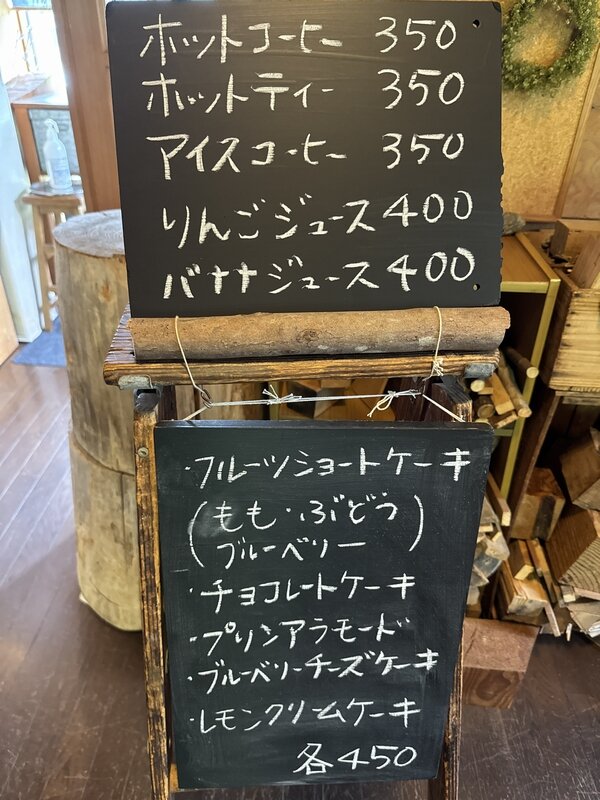 ホットコーヒー 350
ホットティー 350
アイスコーヒー 350
りんごジュース 400
バナナジュース 400
・フルーツショートケーキ
(もも・ぶどう
ブルーベリー)
・チョコレートケーキ
・プリンアラモード
・ブルーベリーチーズケーキ
・レモンクリームケーキ
各450